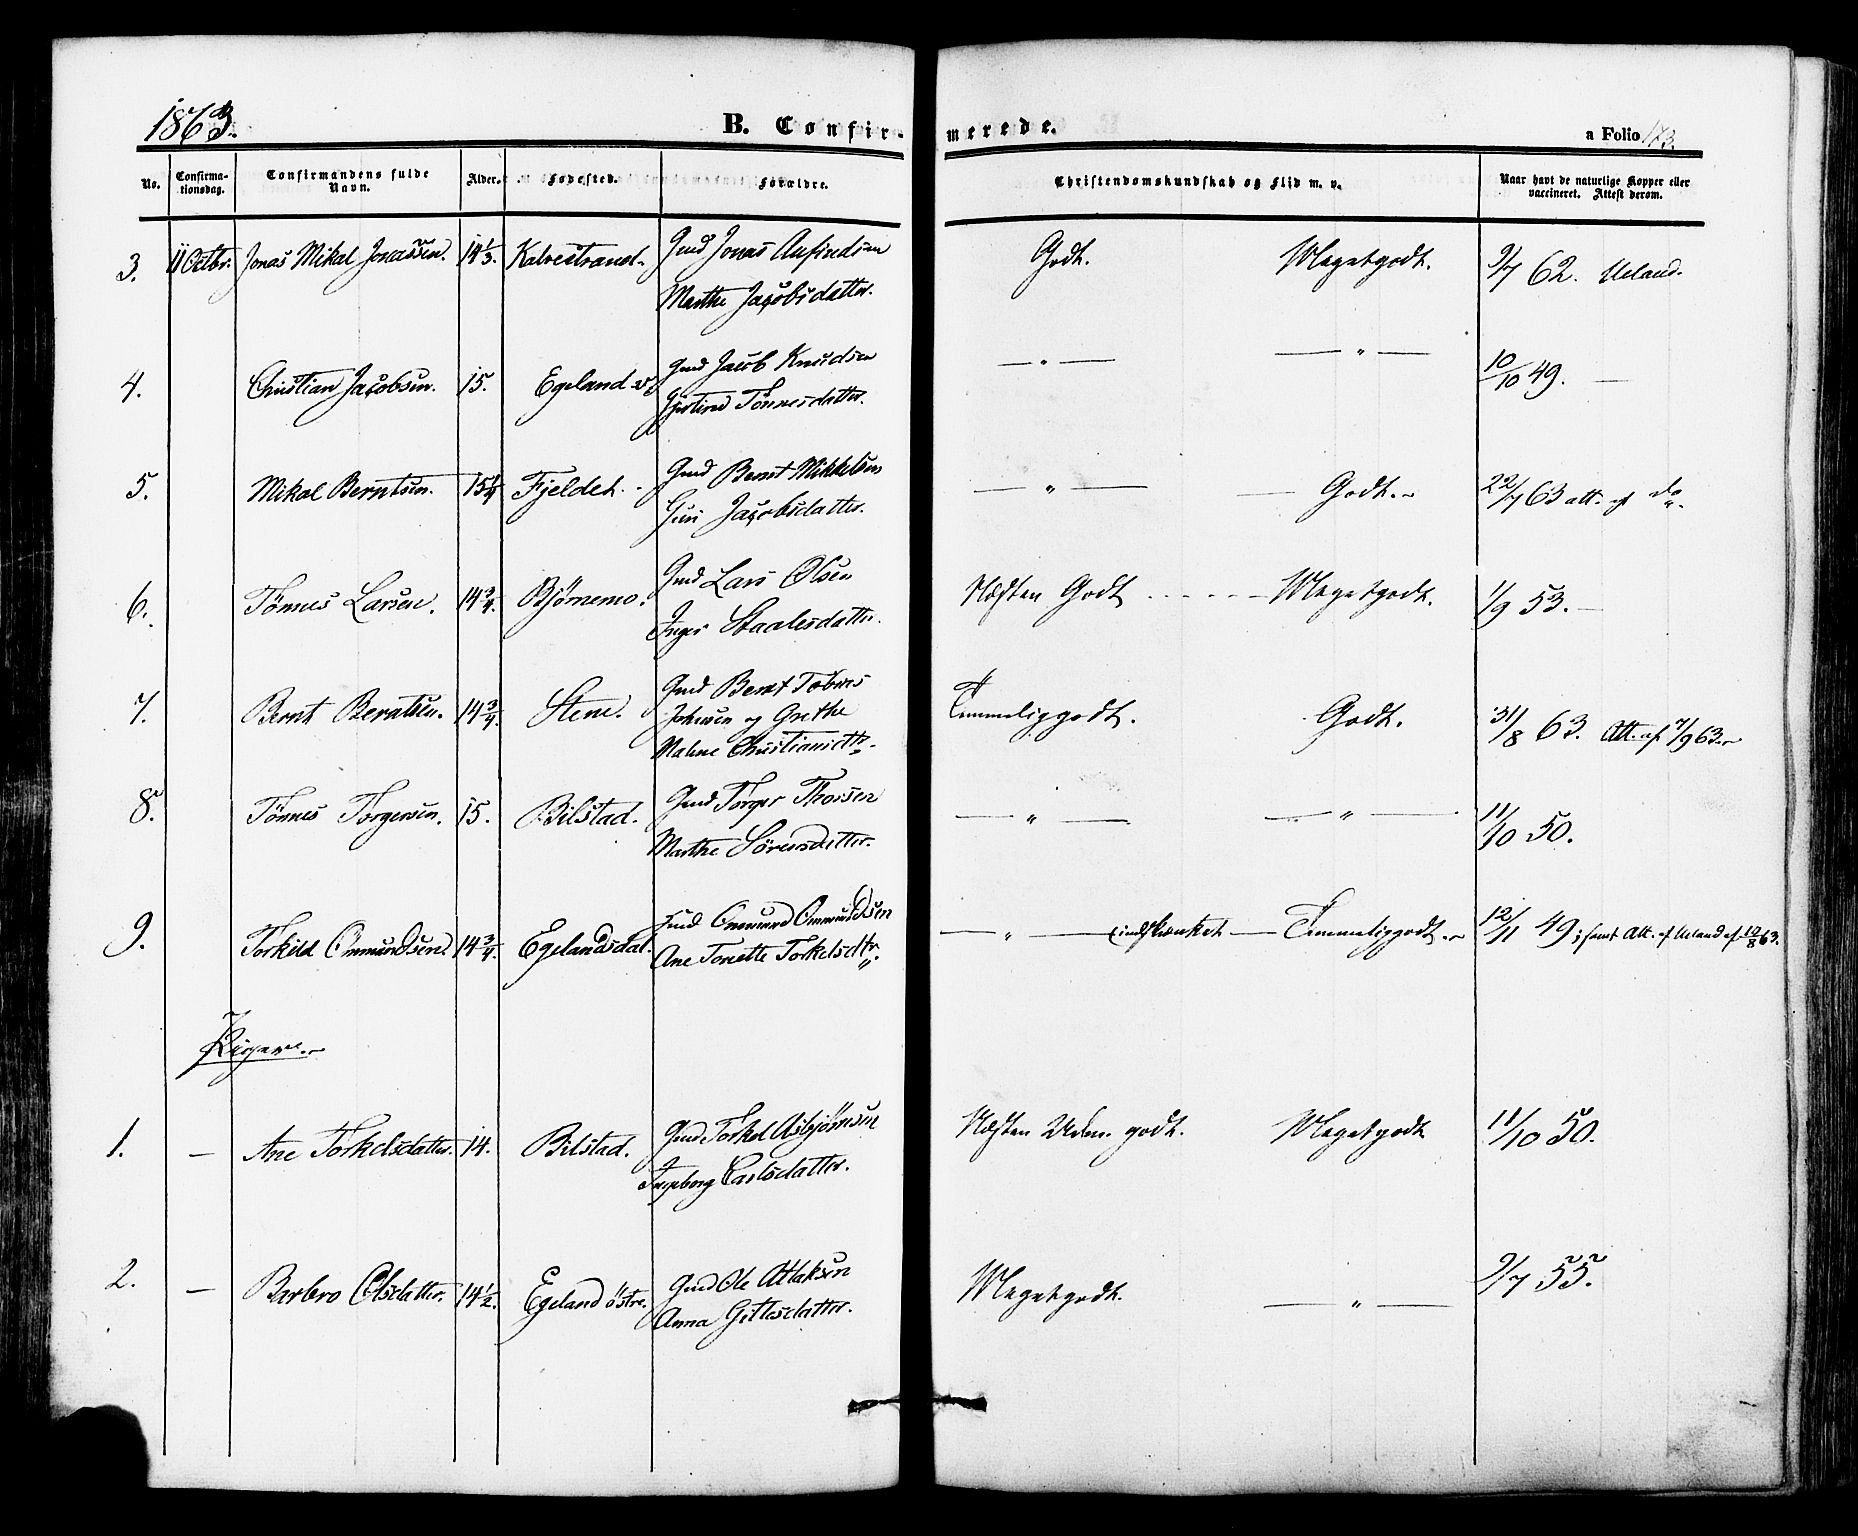 1863.
B. Confir-
merede.
a Folio 173.
No.
Confirma-
tionsdag.
Confirmandens fulde
Navn.
Alder.
Fødested.
Forældre.
Christendomskundskab og Flid m. v.
Naar havt de naturlige Kopper eller
vaccineret. Attest derom.
3. 11 Octbr. Jonas Mikal Jonassen. 14 1/3. Kalvestrand. Gmd Jonas Aufindsen Godt. Megetgodt. 9/7 62. Ueland.
Marthe Jacobsdatter.
4. Christian Jacobsen. 15. Egeland v. Gmd Jacob Knudsen — " — — " — 10/10 49. —
Gjertine Tönnesdatter.
5. Mikal Berntsen. 15 1/4 Fjeldet. Gmd Bernt Mikkelsen — " — — Godt. 22/7 63 att. af do
Guri Jacobsdatter.
6. Tönnes Larsen. 14 3/4. Bjørnemo. Gmd Lars Olsen Næsten Godt - - - - Megetgodt. 1/9 53. —
Inger Staalesdatter.
7. Bernt Berntsen. 14 3/4. Stene. Gmd Bernt Tobias Temmeliggodt. Godt. 31/8 63. Att. af 7/9 63.
Johnsen og Grethe
Malene Christiansdtr.
8. Tönnes Torgersen. 15. Bilstad. Gmd Torger Thorsen — " — — " — 11/10 50.
Marthe Sörensdatter.
9. Torkild Ommundsen. 14 3/4. Egelandsdal. Ommund Ommundsen — " — indskrænket — Temmeliggodt. 12/11 49; samt Att. af Ueland af 10/8 63.
Ane Tonette Torkelsdtr.
Piger.
1. — Ane Torkelsdatter. 14. Bilstad. Gmd Torkel Asbjörnsen Næsten Udm. godt. Megetgodt 11/10 50.
Ingeborg Carlsdatter.
2. — Barbro Olsdatter. 14 1/2. Egeland östre. Gmd Ole Atlaksen Megetgodt. — " — 9/7 55.
Anna Gitlesdatter.